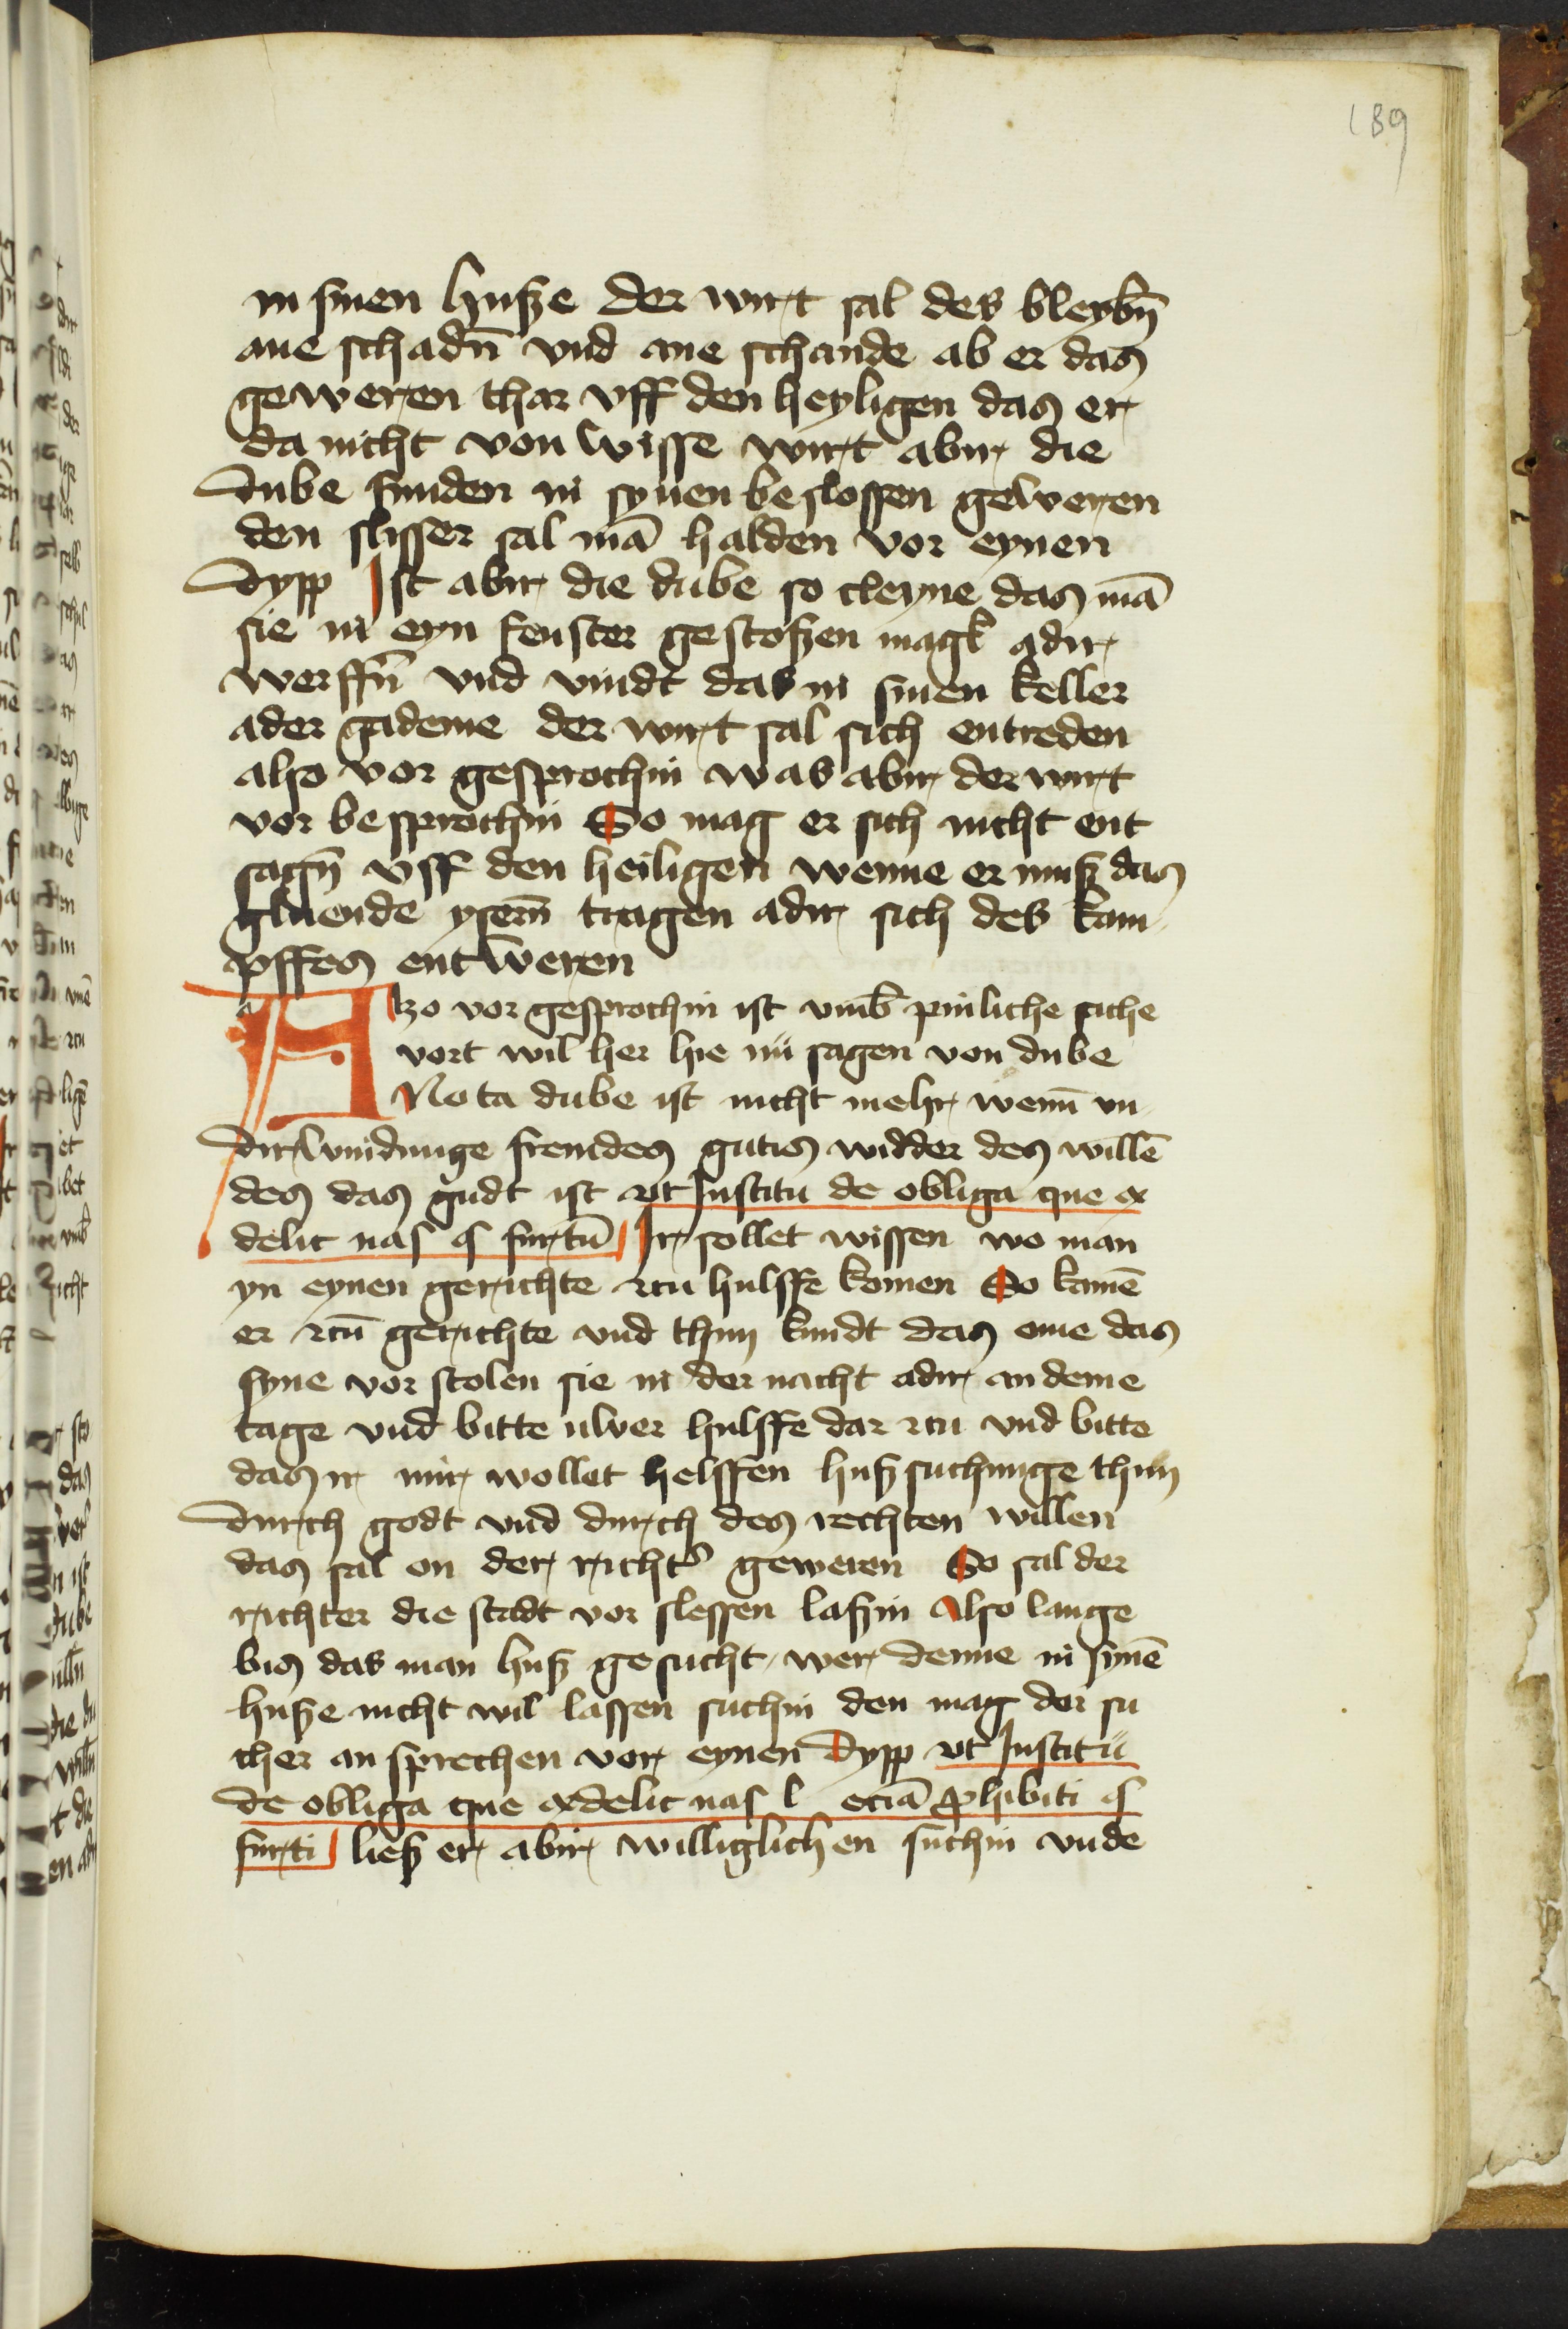 189
in sinen husze der wirt sal des bleybn̄
ane schadn̄ vnd ane schande ab er das
geweren thar vff den heyligen das er
da nicht von wisse wirt abir die
dube funden in synen beslossen geweren
den slisser sal mā halden vor eynen
dypp Ist abir die dube so cleyne das mā
sie in eyn fenster gestoszen magk adir
werffn̄ vnd vindt das in sinen keller
ader gademe der wirt sal sich entreden
also vor gesprochin was abir der wirt
vor besprochin So mag er sich nicht ent
sagn̄ vff den heiligen wenne er musz das
gluende yserm̄ tragen adir sich des kam
pffes entweren
Alzo vor gesprochin ist vmb̄ pinliche sache
vort wil her hie nü sagen von dube
Nota dube ist nicht mehr wenn̄ vn
dirwindunge fremdes gutis widder des willē
des das gudt ist vt Institu de obliga que ex
delic nas § furtū Ir sollet wissen wo man
yn eynen gerichte zcu hulffe komen So kamē
er zcū gerichte vnd thun kundt das ome das
syne vor stolen sie in der nacht adir an deme
tage vnd bitte uwer hulffe dar zcu vnd bitte
das ir mir wollet helffen husz suchunge thun
durch godt vnd durch des rechten willen
das sal on der richt' geweren So sal der
richter die stadt vor slessen laszin Also lange
bis das man husz gesucht wer denne in synē
husze nicht wil lassen suchin den mag der su
cher an sprechen vor eynen dypp vt Institü
de obliga que ex delic nas l eciā ꝓhibiti §
furti liesz er abir williglichen suchin vnde